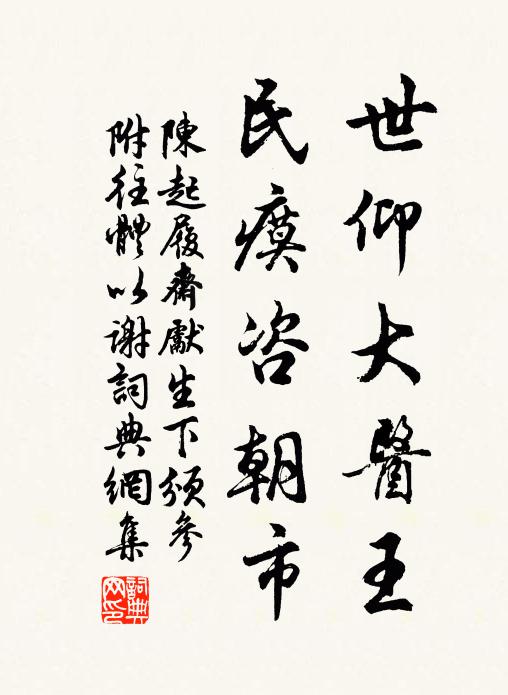 世仰大醫王
民瘼咨朝市
陳起履齋獻生下頒參
附往體以謝詞典網集
詞典网印